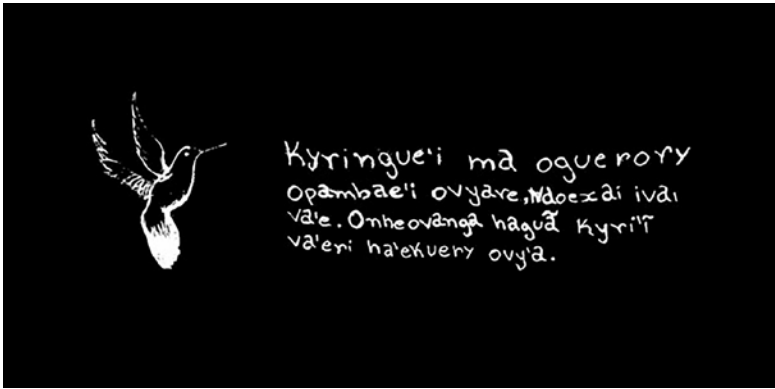 Kyringue'i ma oguerory
opambae'i ovyare, Ndoexai ivai
va'e. Onheovanga haguã kyri'ĩ
va'eri ha'ekuery ovy'a.